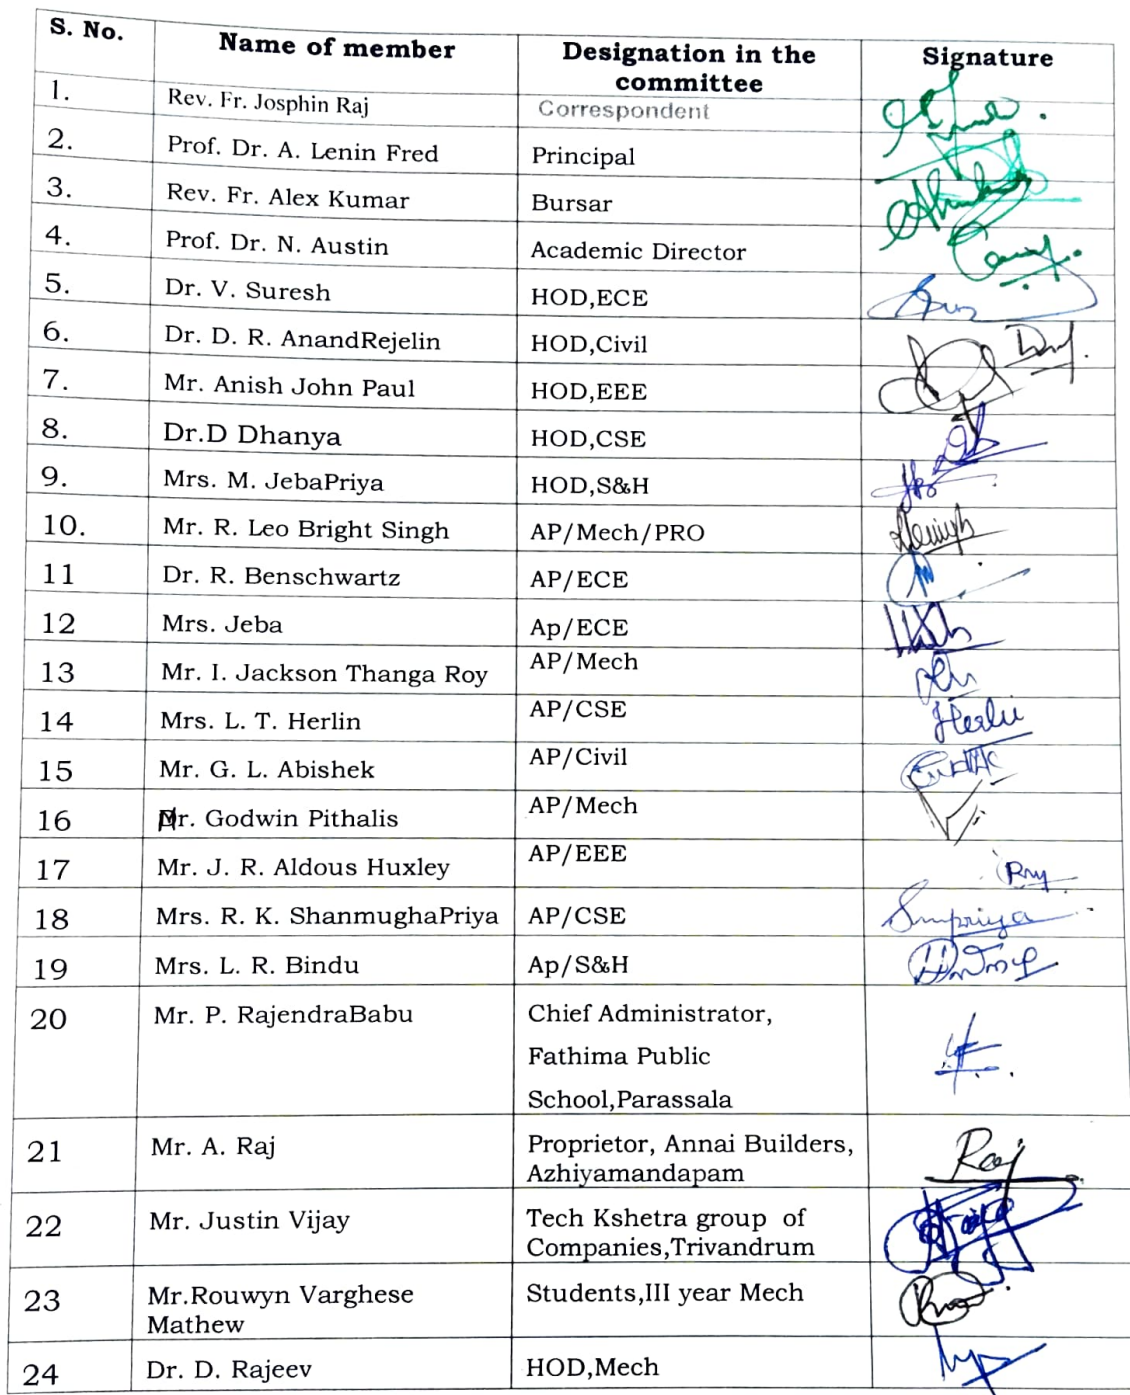 S. No. Name of member Designation in the Signature
committee
1. Rev. Fr. Josphin Raj Correspondent
2. Prof. Dr. A. Lenin Fred Principal
3. Rev. Fr. Alex Kumar Bursar
4. Prof. Dr. N. Austin Academic Director
5. Dr. V. Suresh HOD,ECE
6. Dr. D. R. AnandRejelin HOD,Civil
7. Mr. Anish John Paul HOD,EEE
8. Dr.D Dhanya HOD,CSE
9. Mrs. M. JebaPriya HOD,S&H
10. Mr. R. Leo Bright Singh AP/Mech/PRO
11 Dr. R. Benschwartz AP/ECE
12 Mrs. Jeba Ap/ECE
13 Mr. I. Jackson Thanga Roy AP/Mech
14 Mrs. L. T. Herlin AP/CSE
15 Mr. G. L. Abishek AP/Civil
16 Mr. Godwin Pithalis AP/Mech
17 Mr. J. R. Aldous Huxley AP/EEE
18 Mrs. R. K. ShanmughaPriya AP/CSE
19 Mrs. L. R. Bindu Ap/S&H
20 Mr. P. RajendraBabu Chief Administrator,
Fathima Public
School,Parassala
21 Mr. A. Raj Proprietor, Annai Builders, Raj
Azhiyamandapam
22 Mr. Justin Vijay Tech Kshetra group of
Companies,Trivandrum
23 Mr.Rouwyn Varghese Students,III year Mech
Mathew
24 Dr. D. Rajeev HOD,Mech